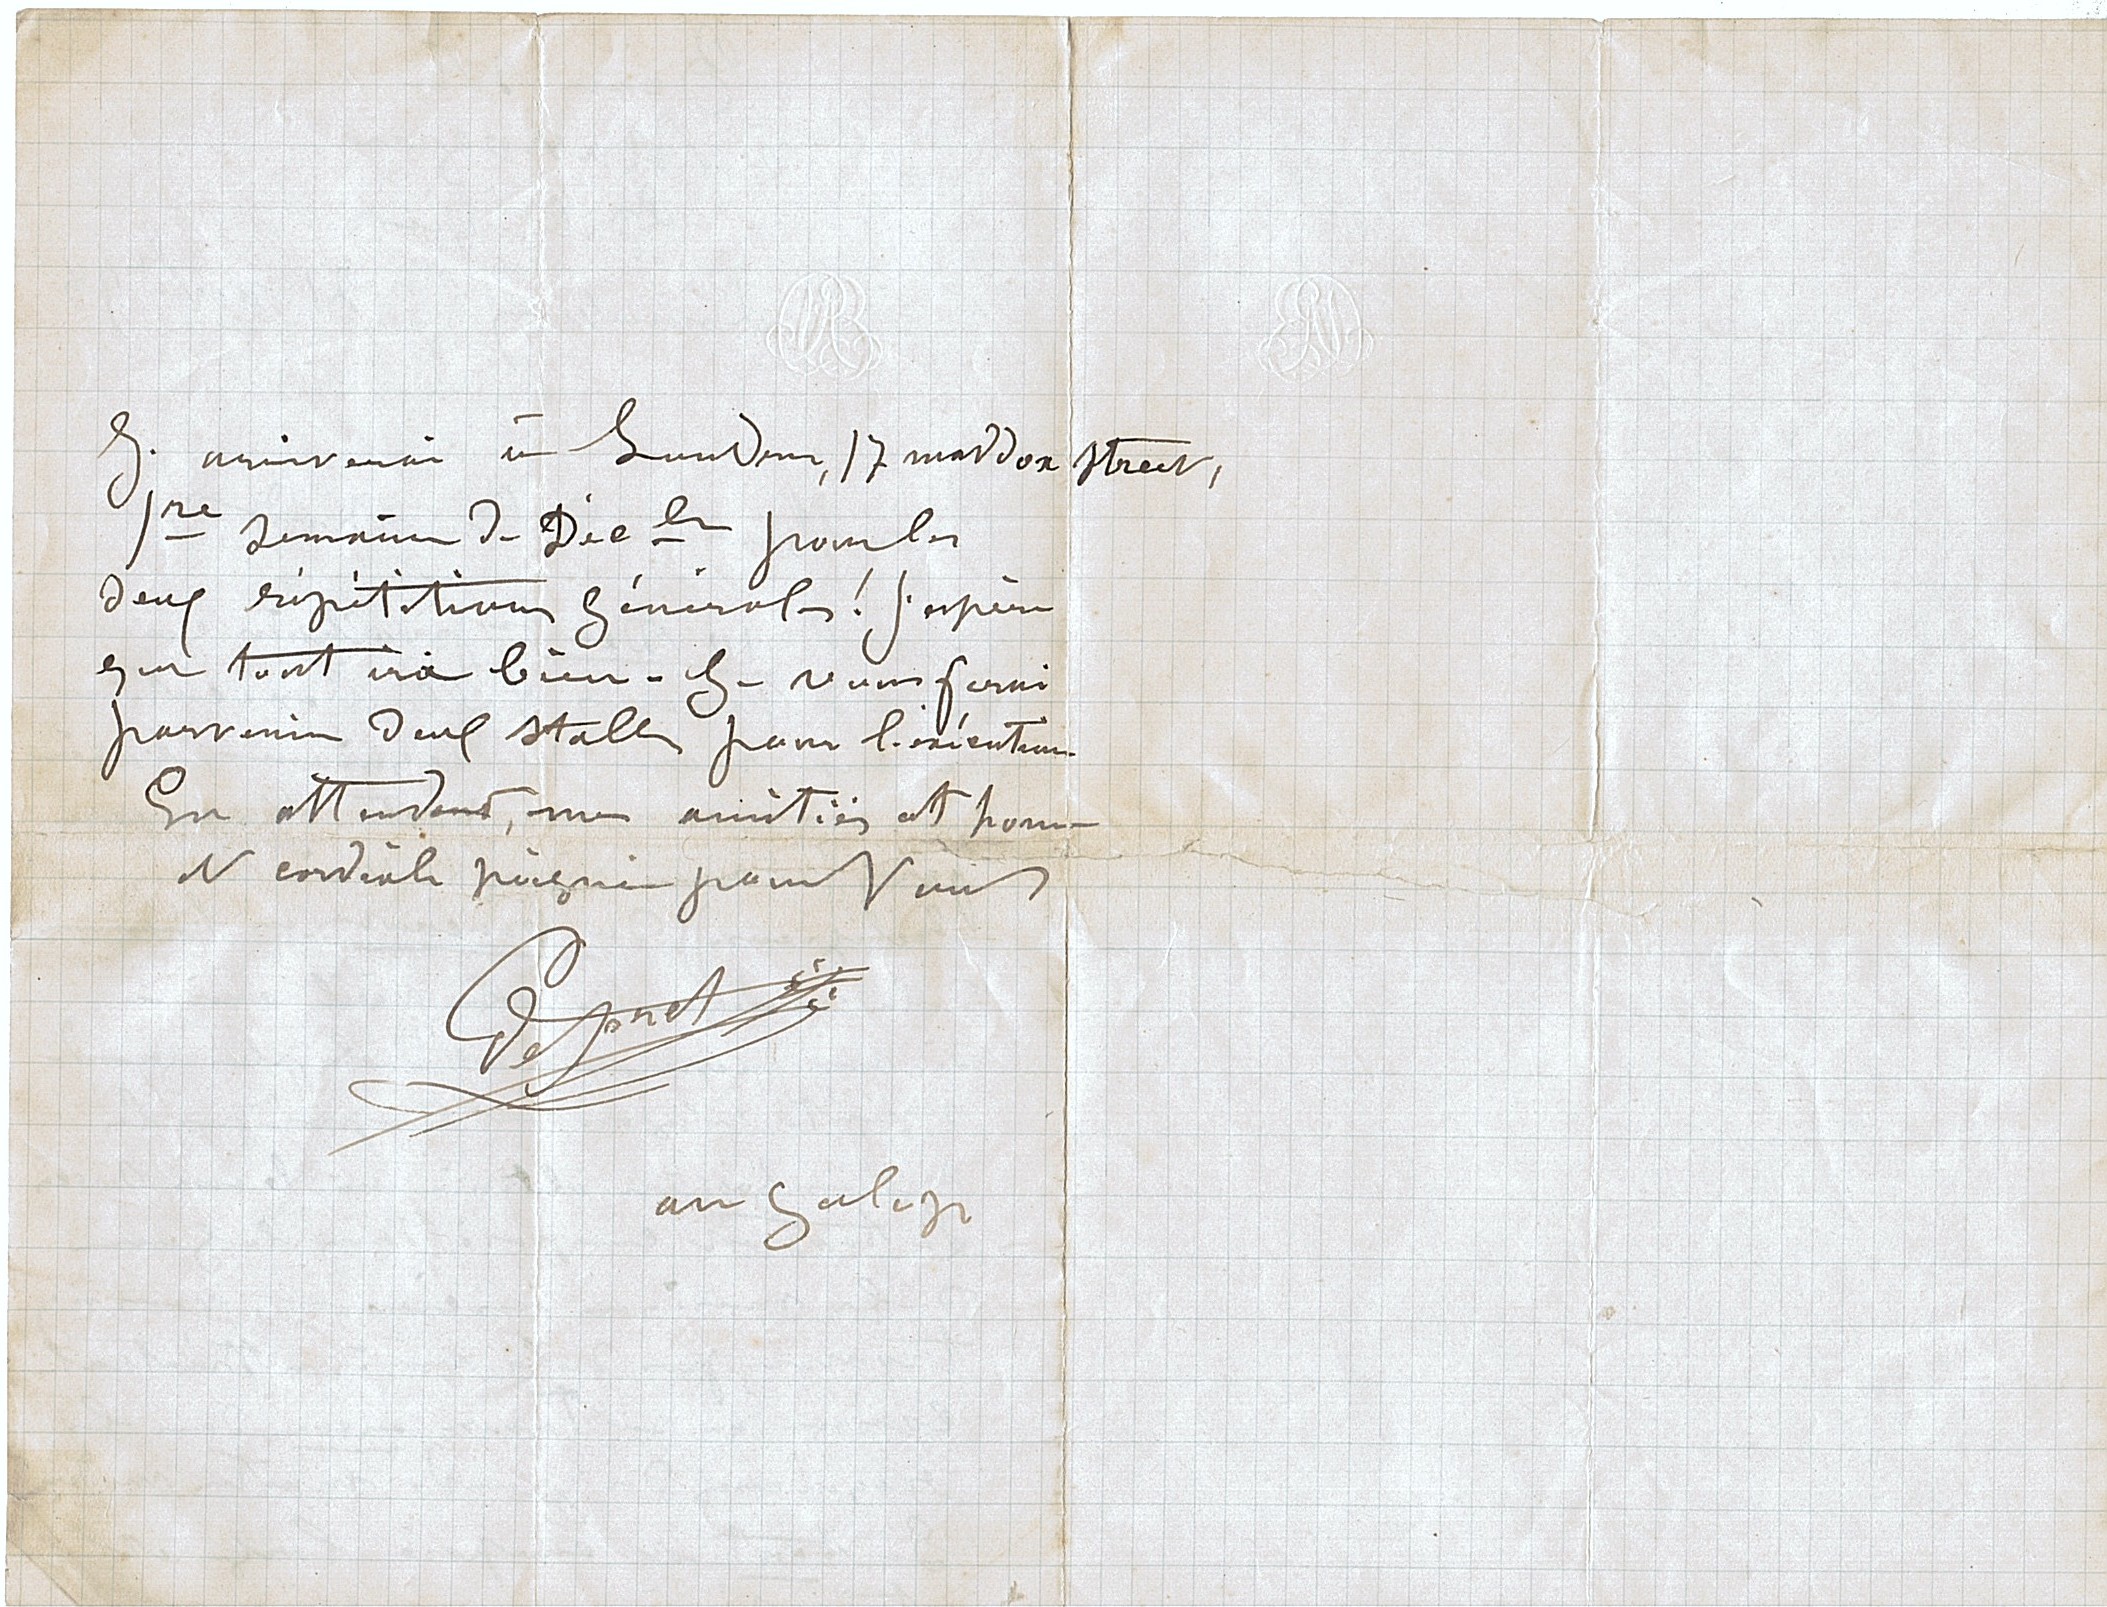 J'arriverai à Londres, 17 maddox street,
1re semaine de Déc bre pour les
deux répétitions générales! J'espère
que tout ira bien - Je vous ferai
parvenir deux stalles pour l'exécution.
En attendant, mes amitiés at home
et cordiale poignée pour Vous
au galop